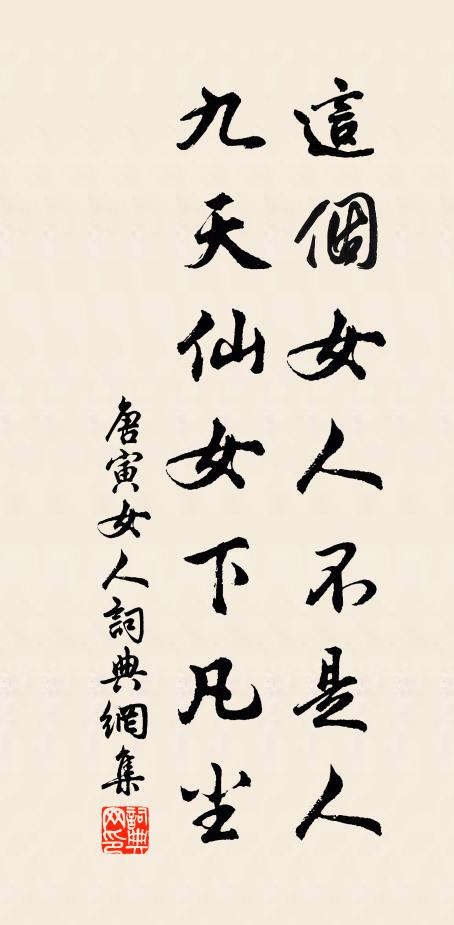 這個女人不是人
九天仙女下凡尘
唐寅女人詞典網集
詞典
网印